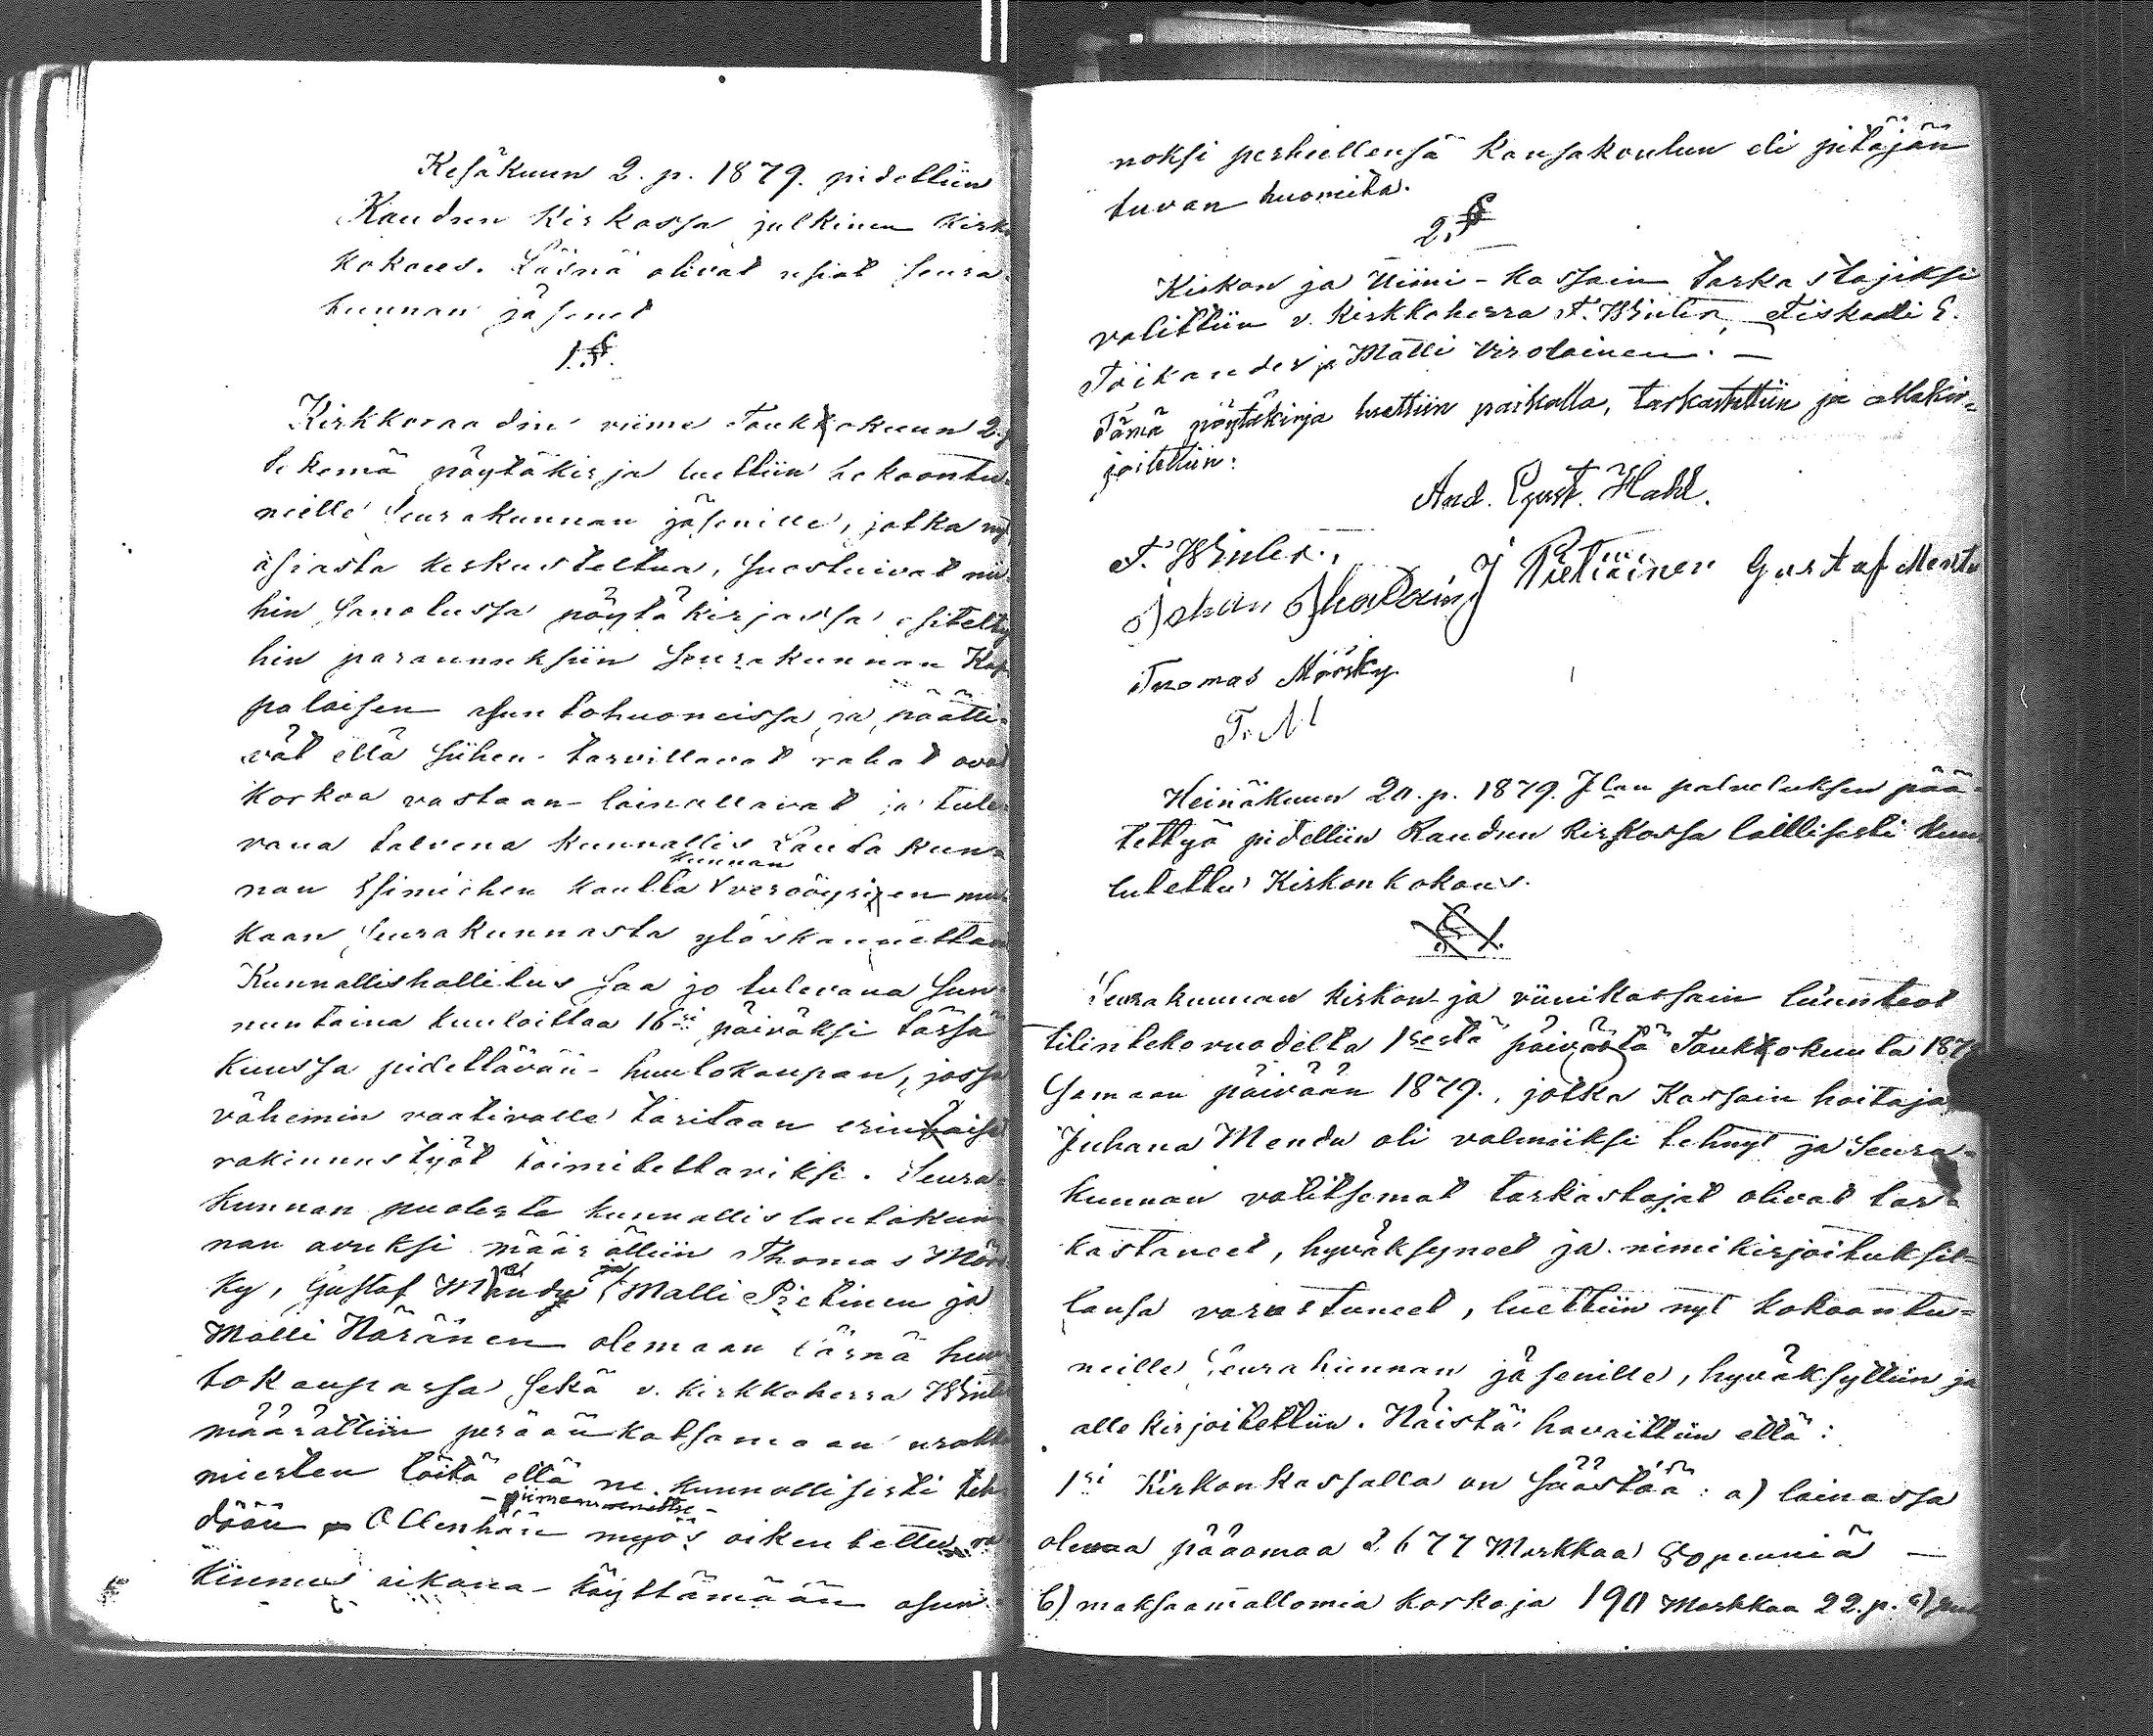 Kesäkuun 2. p. 1879. pidettiin
Raudun Kirkossa julkinen Kirko
kokous. Läsnä olivat usiat seura-
kunnan jäsenet
1.§.
Kirkkoraadin viime Toukokuun 2. p
tekemä pöytäkirja luettiin kokoontu-
neille Seurakunnan jäsenille, jotka nyt
asiasta keskusteltua, suostuivat nii-
hin sanotussa pöytäkirjassa esitelty
hin parannuksiin Seurakunnan Kap
palaisen asuntohuoneissa ja päätti-
vät että siihen tarvittavat rahat ovat
korkoa vastaan lainattavat ja tule-
vana talvena kunnallis Lautakun-
nan Esimiehen kautta kunnan veroäyrien mu-
kaan Seurakunnasta ylöskannettava
Kunnallishallitus saa jo tulevana Sun-
nuntaina kuuloittaa 16si päiväksi tässä
kuussa pidettävän huutokaupan, jossa
vähemin vaativalle taritaan erinäiset
rakennustyöt toimitettaviksi. Seura-
kunnan puolesta kunnallislautakun
nan avuksi määrättiin Thomas Mörs
ky, Gustaf Mendu, Matti Pietinen ja
Matti Näränen olemaan läsnä huu
tokaupassa sekä v. Kirkkoherra Winter
määrättiin perään katsomaan urakka
miesten töitä että ne kunnollisesti teh
dään Ollenhän myös oikeutettu ra
kennus aikana käyttämään asun-
noksi perheellensä Kansakoulun eli pitäjän
tuvan huoneita.
2.§
Kirkon ja Viini-kassain tarkastajiksi
valittiin v. Kirkkoherra F. Winter, Fiskaali E.
Töikander ja Matti Virolainen. —
Tämä pöytäkirja luettiin paikalla, tarkastettiin ja allekir-
joitettiin:
And. Gust. Hahl.
F. Winter.
Johan J Pietiäinen Gustaf Mentu
Tuomas Mörsky.
T. M
Heinäkuun 20. p. 1879. Jlan palveluksen pää-
tettyä pidettiin Raudun kirkossa laillisesti kuu
lutettu Kirkonkokous.
§ 1.
Seurakunnan kirkon- ja viinikassain luonteot
tilintekovuodelta 1sestä päivästä Toukokuuta 187
samaan päivään 1879., jotka Kassain hoitaja
Juhana Mendu oli valmiiksi tehnyt ja Seura-
kunnan valitsemat tarkastajat olivat tar-
kastaneet, hyväksyneet ja nimikirjoituksil-
lansa varustaneet, luettiin nyt kokoontu-
neille Seurakunnan jäsenille, hyväksyttiin ja
allekirjoitettiin. Näistä havaittiin että:
1si Kirkonkassalla on säästöä: a) lainassa
olevaa pääomaa 2,677 Markkaa 80 penniä —
b) maksaamattomia korkoja 190 Markkaa 22. p. c)